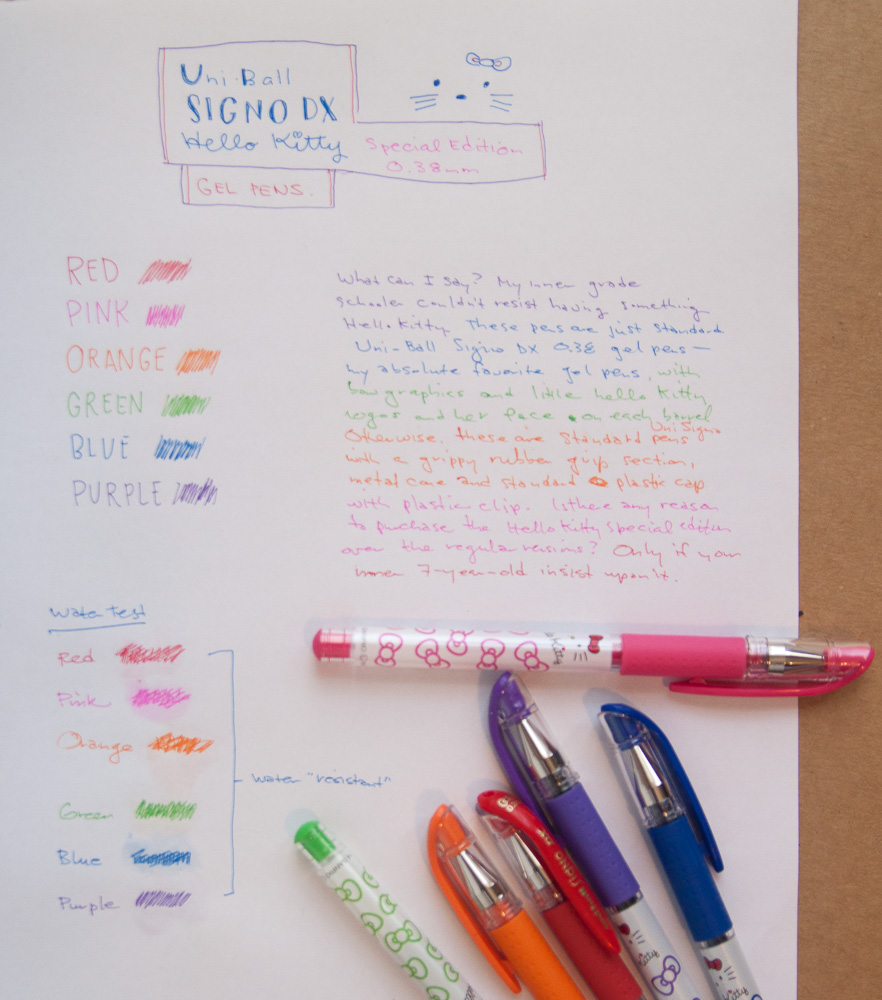 Uni-Ball
SIGNO DX
Hello Kitty
Special Edition
0.38mm
GEL PENS.
RED
PINK
ORANGE
GREEN
BLUE
PURPLE
What can I say? My inner grade
schooler couldn't resist having something
Hello Kitty. These pens are just standard
Uni-Ball Signo DX 0.38 gel pens —
my absolute favorite gel pens, with
bow graphics and little hello Kitty
logos and her face on each barrel
Otherwise, these are standard Uni Signo pens
with a grippy rubber grip section,
metal cone and standard plastic cap
with plastic clip. Is there any reason
to puchase the Hello Kitty Special edition
over the regular versions? Only if your
inner 7-year-old insist upon it.
Water Test
Red
Pink
Orange
Green
Blue
Purple
water "resistant"
Kitty
Kitty
Kitty